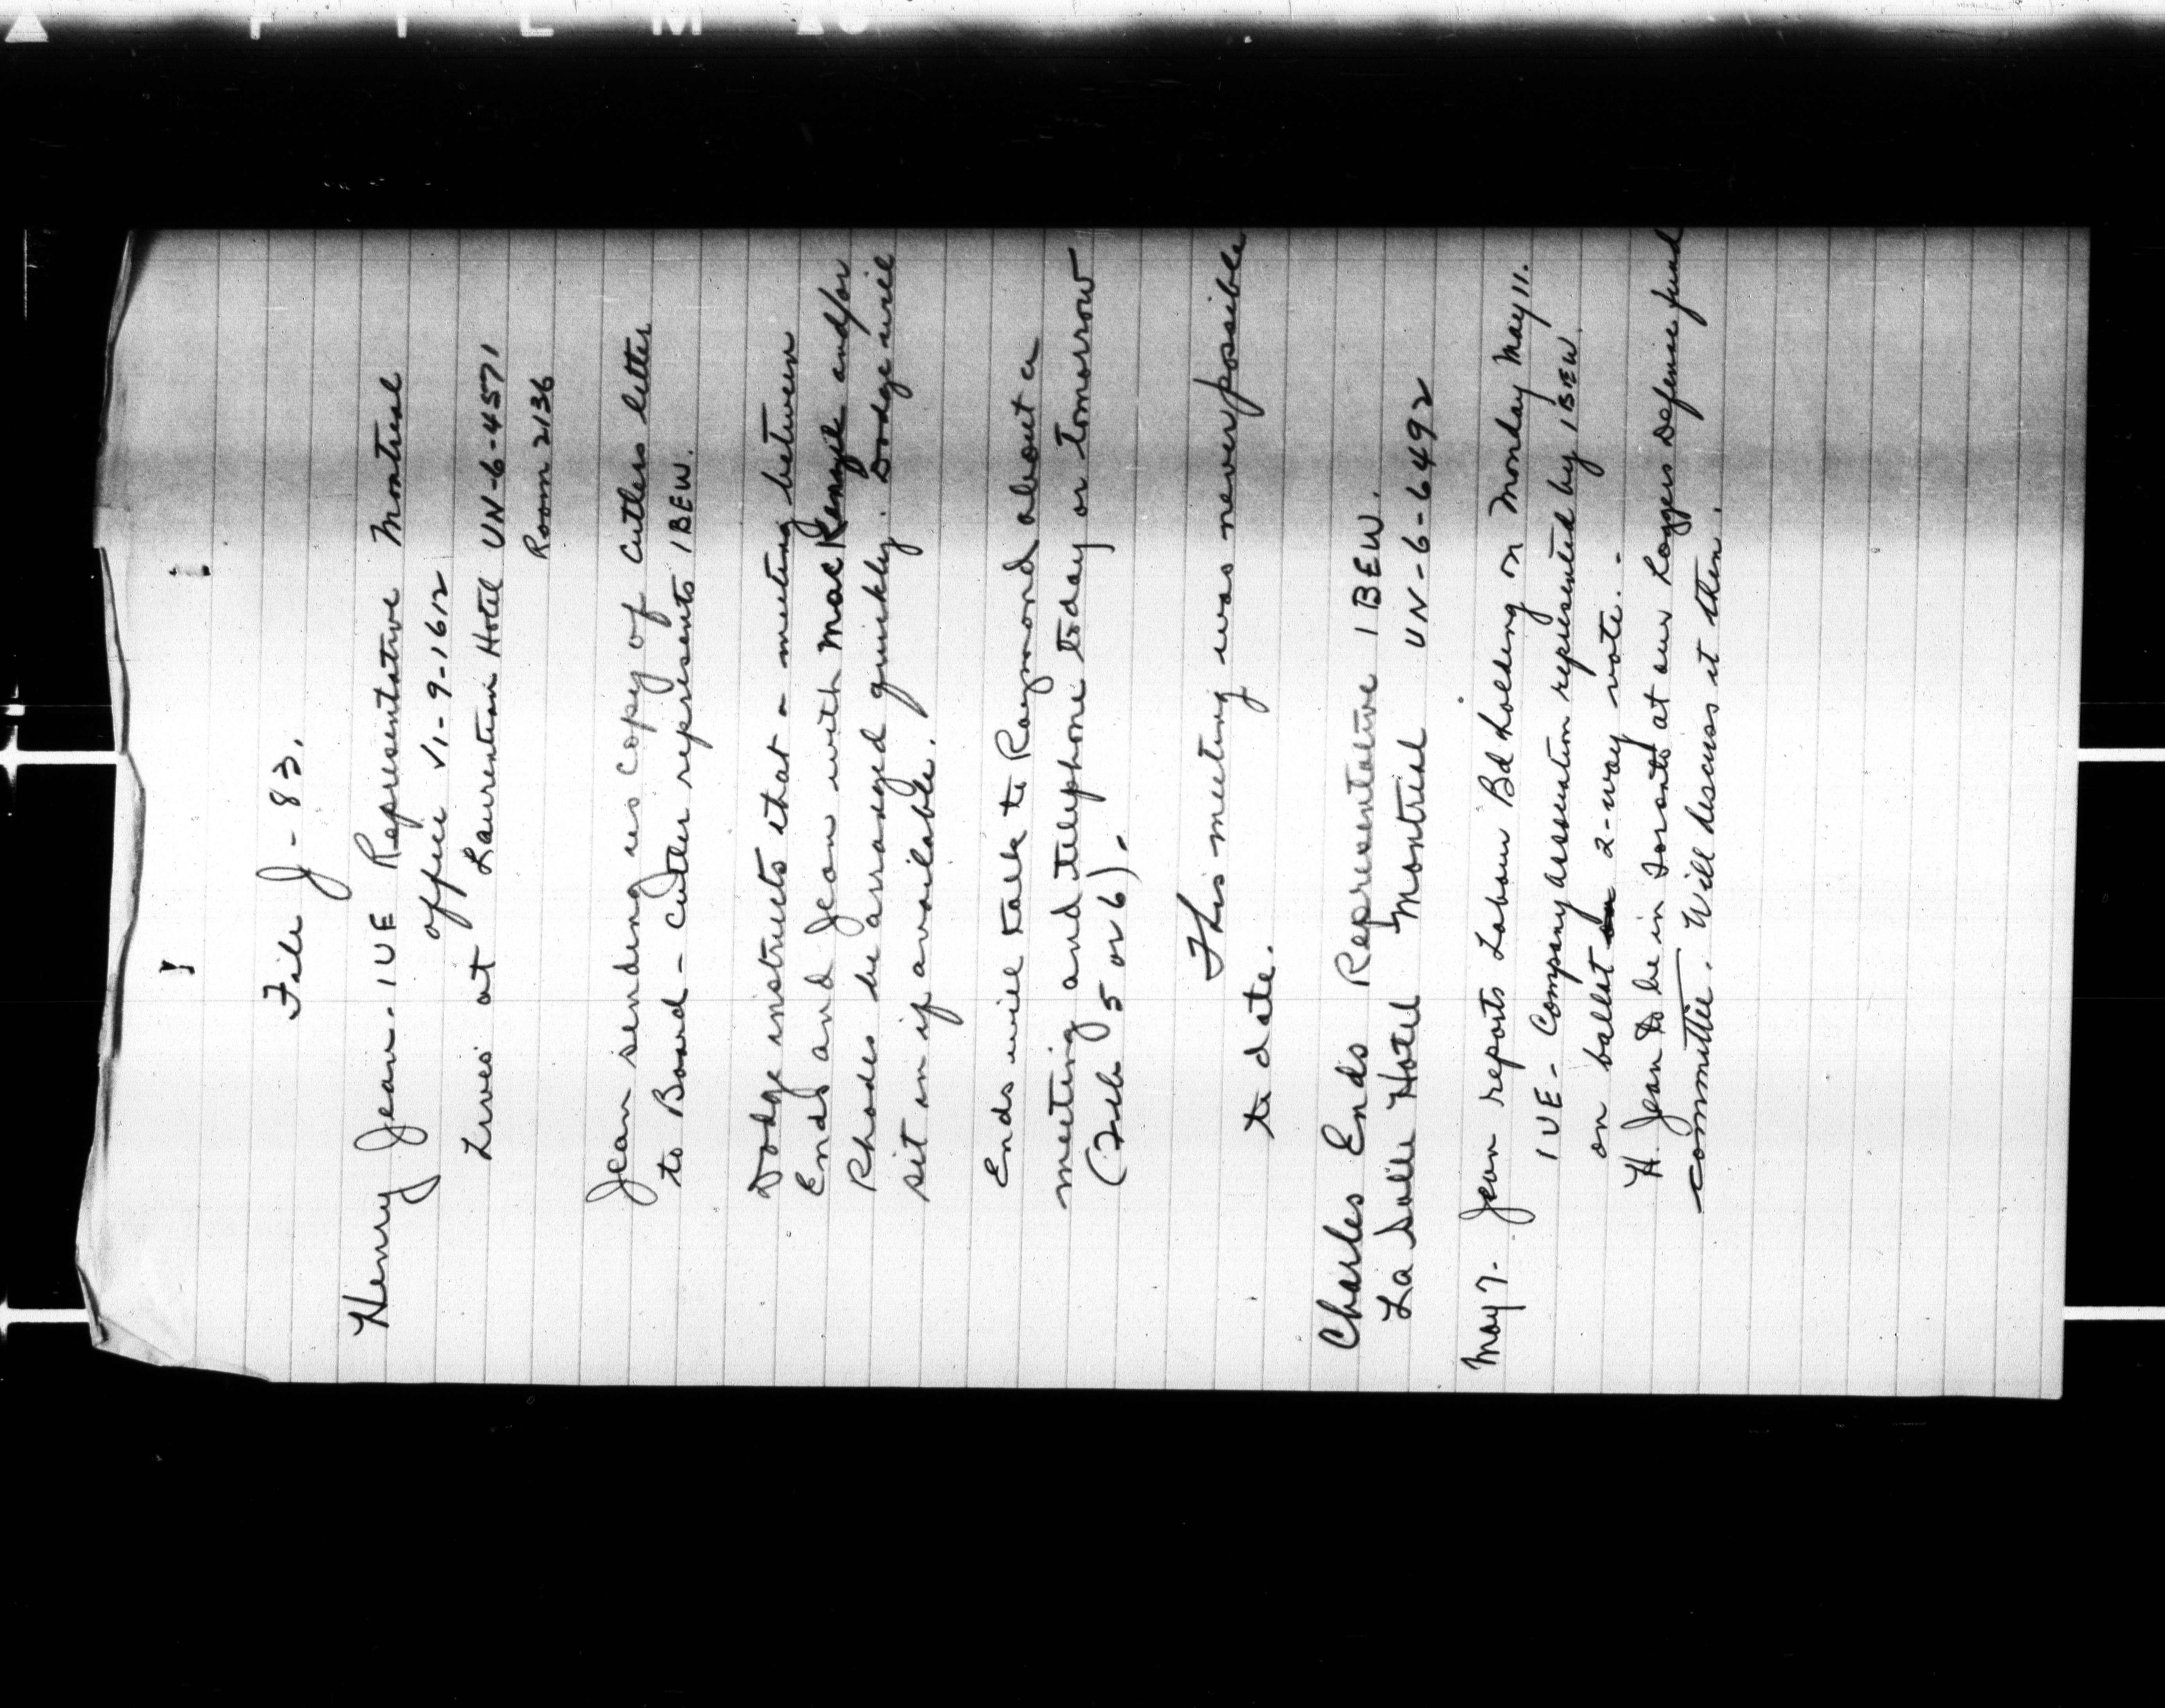 File J-83.
Henry Jean - IUE Representative Montreal
office VI-9-1612
Lives at Laurentian Hotel UN-6-4571
Room 2136
Jean sending us copy of Cutlers letter
to Board - Cutler represents IBEW.
Dodge instructs that a meeting between
Ends and Jean with MacKenzie and/or
Rhodes be arranged quickly. Dodge will
sit in if available.
Ends will talk to Raymond about a
meeting and telephone today or tomorrow
(Feb 5 or 6).
This meeting was never possible
to date.
Charles Ends Representative IBEW.
La Salle Hotel Montreal UN-6-6492
May 7. Jean reports Labour Bd holding on Monday May 11.
IUE - Company association represented by IBEW
on ballot 2-way vote.
H. Jean to be in Toronto at our Loggers Defense fund
committee. Will discuss it then.